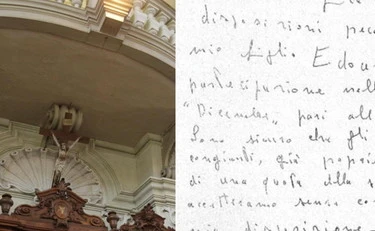 disposizioni
mio figlio Edoa
partecipazione nell
"Dicembre", pari all
Sono sicuro che gli
congiunti, già propri
di una quota della s
accetteranno senza co
mia disposizione